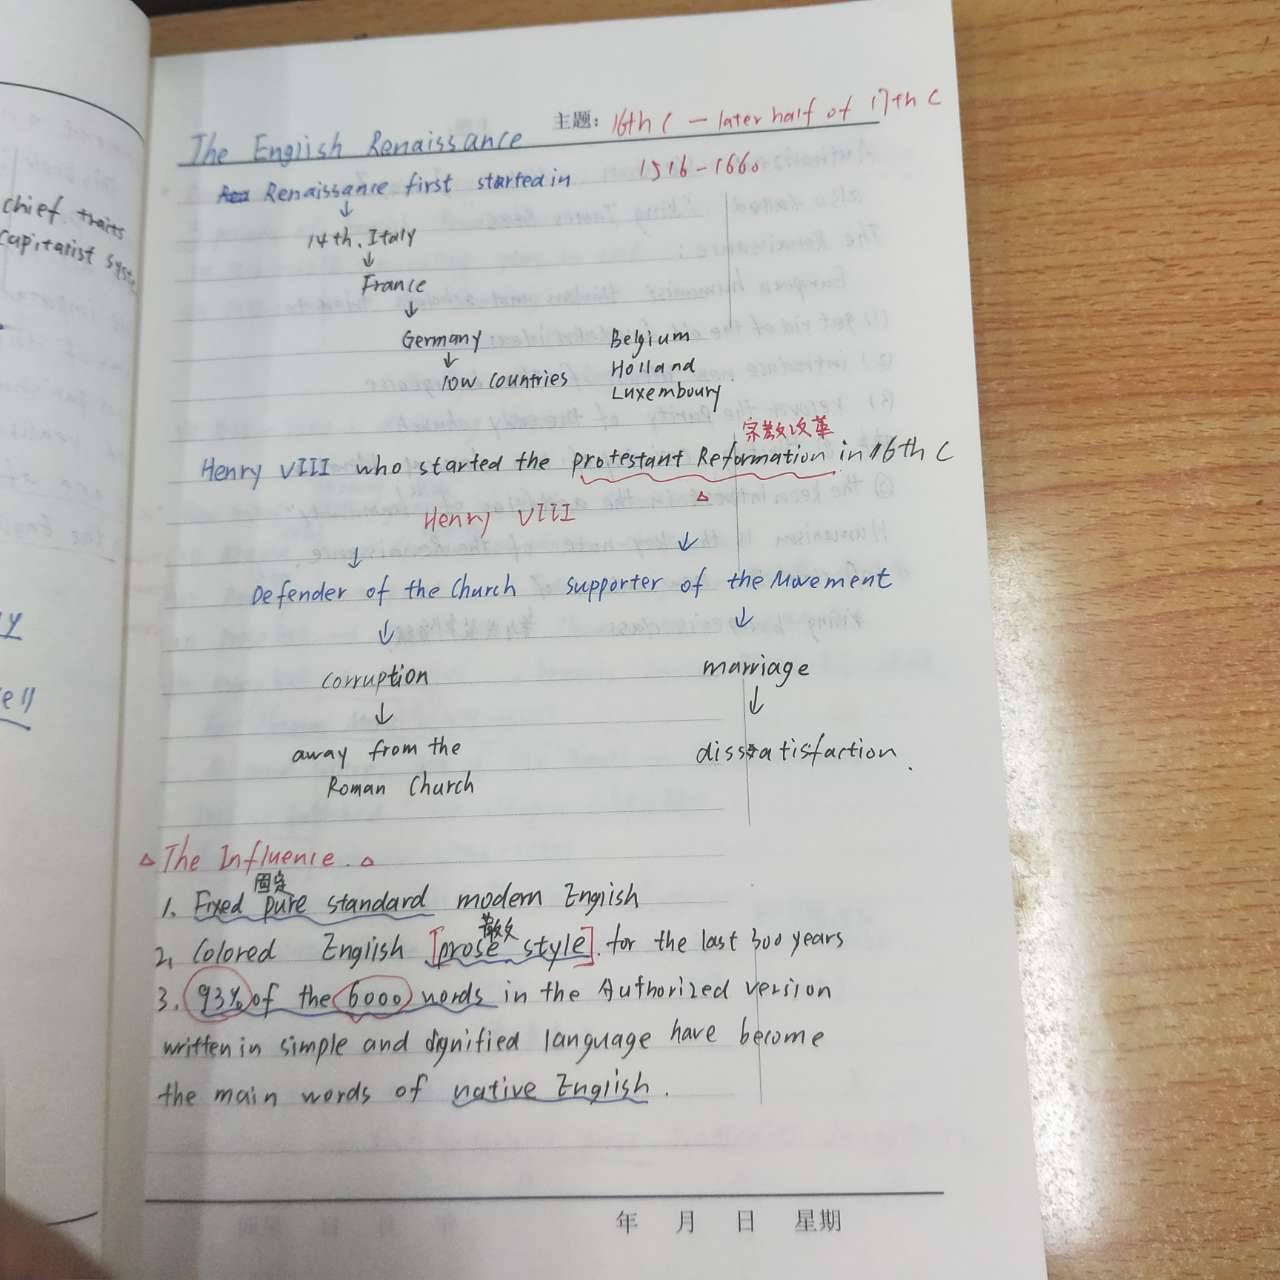 chief traits
capitalist
主题: 16th C — later half of 17th C
The English Renaissance
1516-1660
Renaissance first started in
↓
14th. Italy
↓
France
↓
Germany
↓
low countries
Belgium
Holland
Luxemboury
宗教改革
Henry VIII who started the protestant Reformation in 16th C
△
Henry VIII
↓ ↓
Defender of the Church supporter of the Movement
↓ ↓
corruption marriage
↓ ↓
away from the dissatisfaction.
Roman Church
△ The Influence. △
固定
1. Fixed pure standard modern English
散文
2, Colored English [prose style]. for the last 300 years
3. 93% of the 6000 words in the Authorized version
written in simple and dignified language have become
the main words of native English.
年 月 日 星期